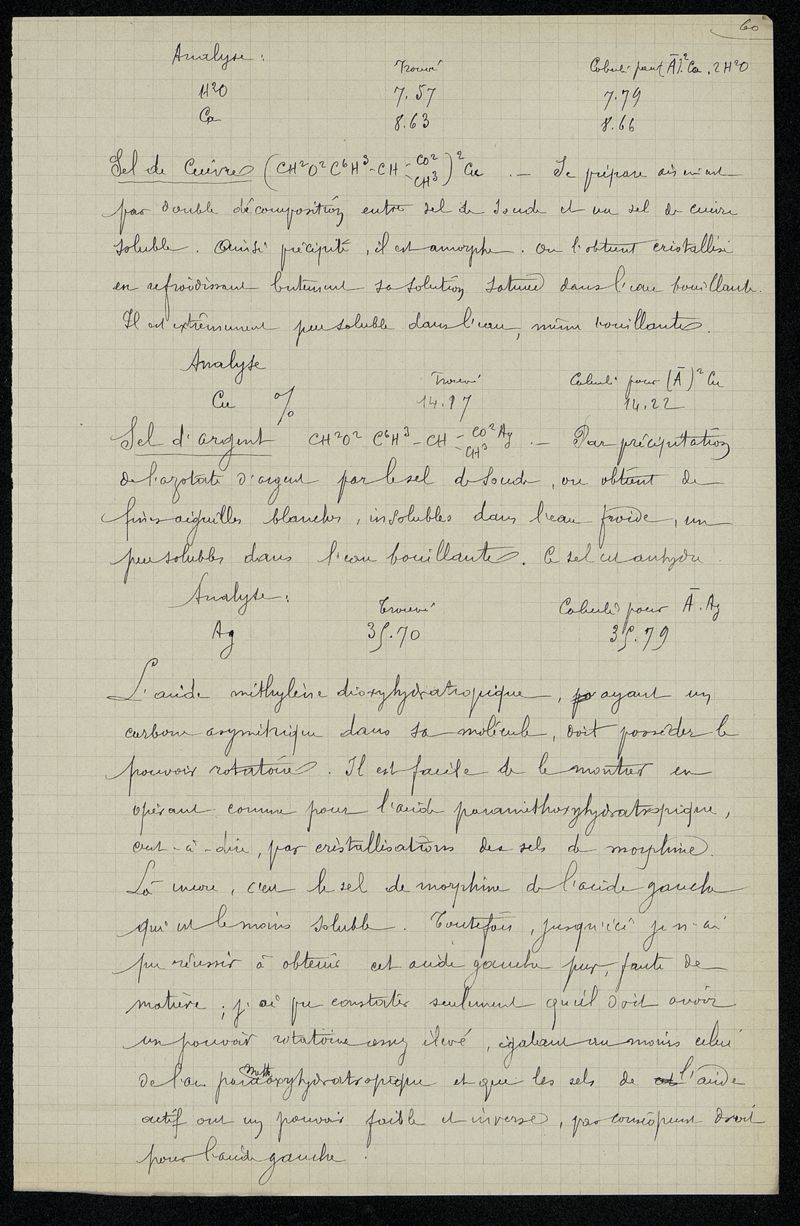 60
Analyse : Trouvé Calculé pour (Ā)².Ca, 2H²O
H²O 7.57 7.79
Ca 8.63 8.66
Sel de Cuivre (CH²O²C⁶H³-CH-CO²-CH³)²Cu .— Se prépare aisément
par double décomposition entre sel de soude et un sel de cuivre
soluble. Ainsi précipité, il est amorphe. On l'obtient cristallisé
en refroidissant lentement sa solution saturée dans l'eau bouillante.
Il est extrêmement peu soluble dans l'eau, même bouillante.
Analyse Trouvé Calculé pour (Ā)²Cu
Cu % 14.17 14.22
Sel d'argent CH²O² C⁶H³-CH-CO²Ag-CH³ .— Par précipitation
de l'azotate d'argent par le sel de soude, on obtient de
fines aiguilles blanches, insolubles dans l'eau froide, un
peu solubles dans l'eau bouillante. Ce sel est anhydre.
Analyse : Trouvé Calculé pour Ā.Ag
Ag 35.70 35.79
L'acide méthylène dioxyhydratropique, ayant un
carbone asymétrique dans sa molécule, doit posséder le
pouvoir rotatoire. Il est facile de le montrer en
opérant comme pour l'acide paraméthoxyhydratropique,
c'est-à-dire, par cristallisations des sels de morphine.
Là encore, c'est le sel de morphine de l'acide gauche
qui est le moins soluble. Toutefois, jusqu'ici je n'ai
pu réussir à obtenir cet acide gauche pur, faute de
matière ; j'ai pu constater seulement qu'il doit avoir
un pouvoir rotatoire assez élevé, égalant au moins celui
de l'ac paraméthoxyhydratropique et que les sels de l'acide
actif ont un pouvoir faible et inverse, par conséquent droit
pour l'acide gauche.